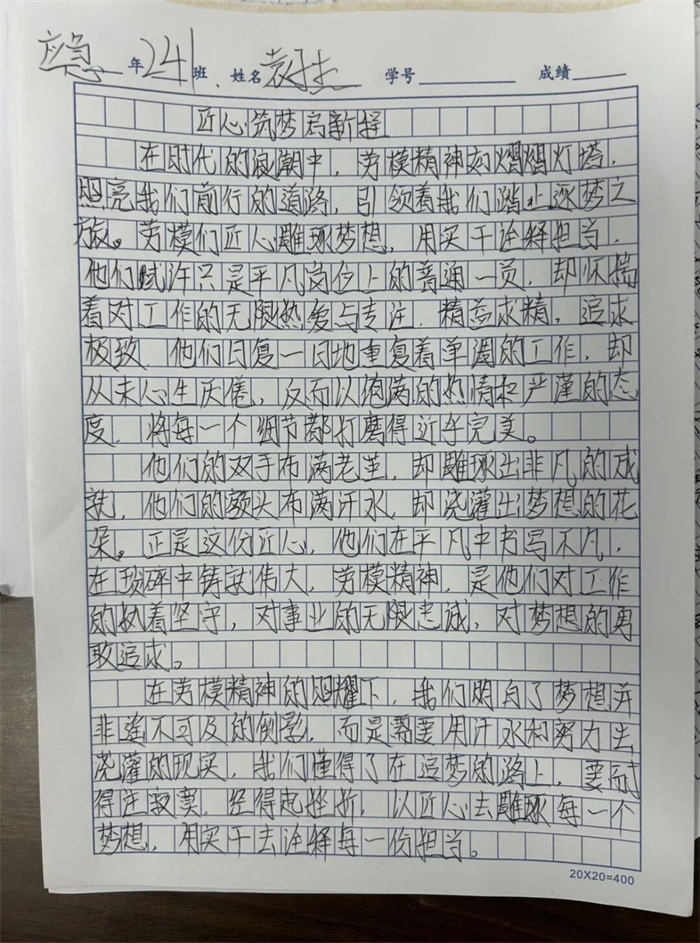 应急 年 241 班 姓名 袁 学号 成绩
匠心筑梦启新程
在时代的浪潮中，劳模精神如熠熠灯塔，
照亮我们前行的道路，引领着我们踏上逐梦之
旅。劳模们匠心雕琢梦想，用实干诠释担当，
他们或许只是平凡岗位上的普通一员，却怀揣
着对工作的无限热爱与专注，精益求精，追求
极致 他们日复一日地重复着单调的工作，却
从未心生厌倦，反而以饱满的热情和严谨的态
度，将每一个细节都打磨得近乎完美。
他们的双手布满老茧，却雕琢出非凡的成
就，他们的额头布满汗水，却浇灌出梦想的花
朵。正是这份匠心，他们在平凡中书写不凡，
在琐碎中铸就伟大，劳模精神，是他们对工作
的执着坚守，对事业的无限忠诚，对梦想的勇
敢追求。
在劳模精神的照耀下，我们明白了梦想并
非遥不可及的倒影，而是需要用汗水和努力去
浇灌的现实，我们懂得了在追梦的路上，要耐
得住寂寞，经得起挫折，以匠心去雕琢每一个
梦想，用实干去诠释每一份担当。
20X20=400